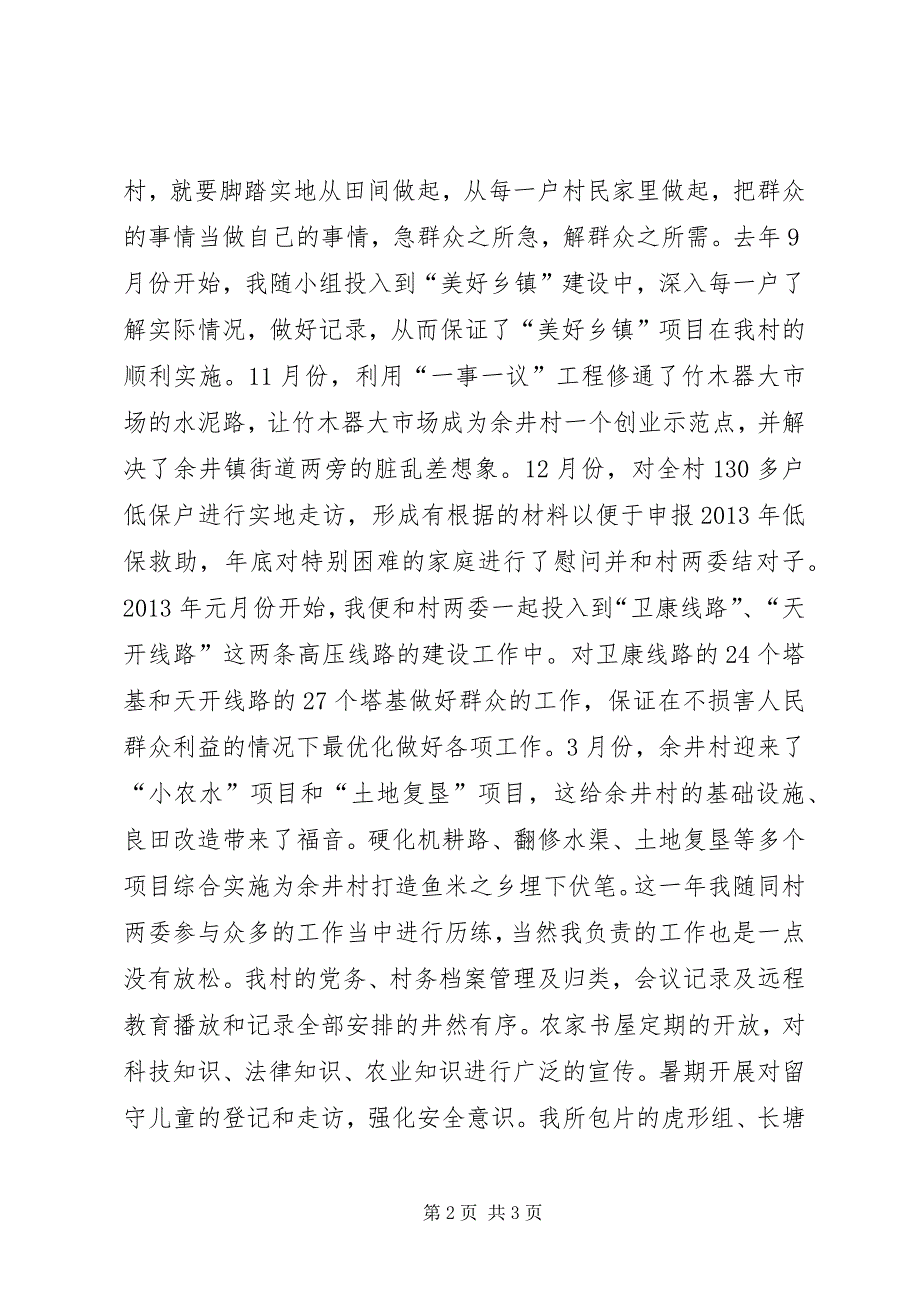 村，就要脚踏实地从田间做起，从每一户村民家里做起，把群众
的事情当做自己的事情，急群众之所急，解群众之所需。去年 9
月份开始，我随小组投入到“美好乡镇”建设中，深入每一户了
解实际情况，做好记录，从而保证了“美好乡镇”项目在我村的
顺利实施。11 月份，利用“一事一议”工程修通了竹木器大市
场的水泥路，让竹木器大市场成为余井村一个创业示范点，并解
决了余井镇街道两旁的脏乱差想象。12 月份，对全村 130 多户
低保户进行实地走访，形成有根据的材料以便于申报 2013 年低
保救助，年底对特别困难的家庭进行了慰问并和村两委结对子。
2013 年元月份开始，我便和村两委一起投入到“卫康线路”、“天
开线路”这两条高压线路的建设工作中。对卫康线路的 24 个塔
基和天开线路的 27 个塔基做好群众的工作，保证在不损害人民
群众利益的情况下最优化做好各项工作。3 月份，余井村迎来了
“小农水”项目和“土地复垦”项目，这给余井村的基础设施、
良田改造带来了福音。硬化机耕路、翻修水渠、土地复垦等多个
项目综合实施为余井村打造鱼米之乡埋下伏笔。这一年我随同村
两委参与众多的工作当中进行历练，当然我负责的工作也是一点
没有放松。我村的党务、村务档案管理及归类，会议记录及远程
教育播放和记录全部安排的井然有序。农家书屋定期的开放，对
科技知识、法律知识、农业知识进行广泛的宣传。暑期开展对留
守儿童的登记和走访，强化安全意识。我所包片的虎形组、长塘
第 2 页 共 3 页